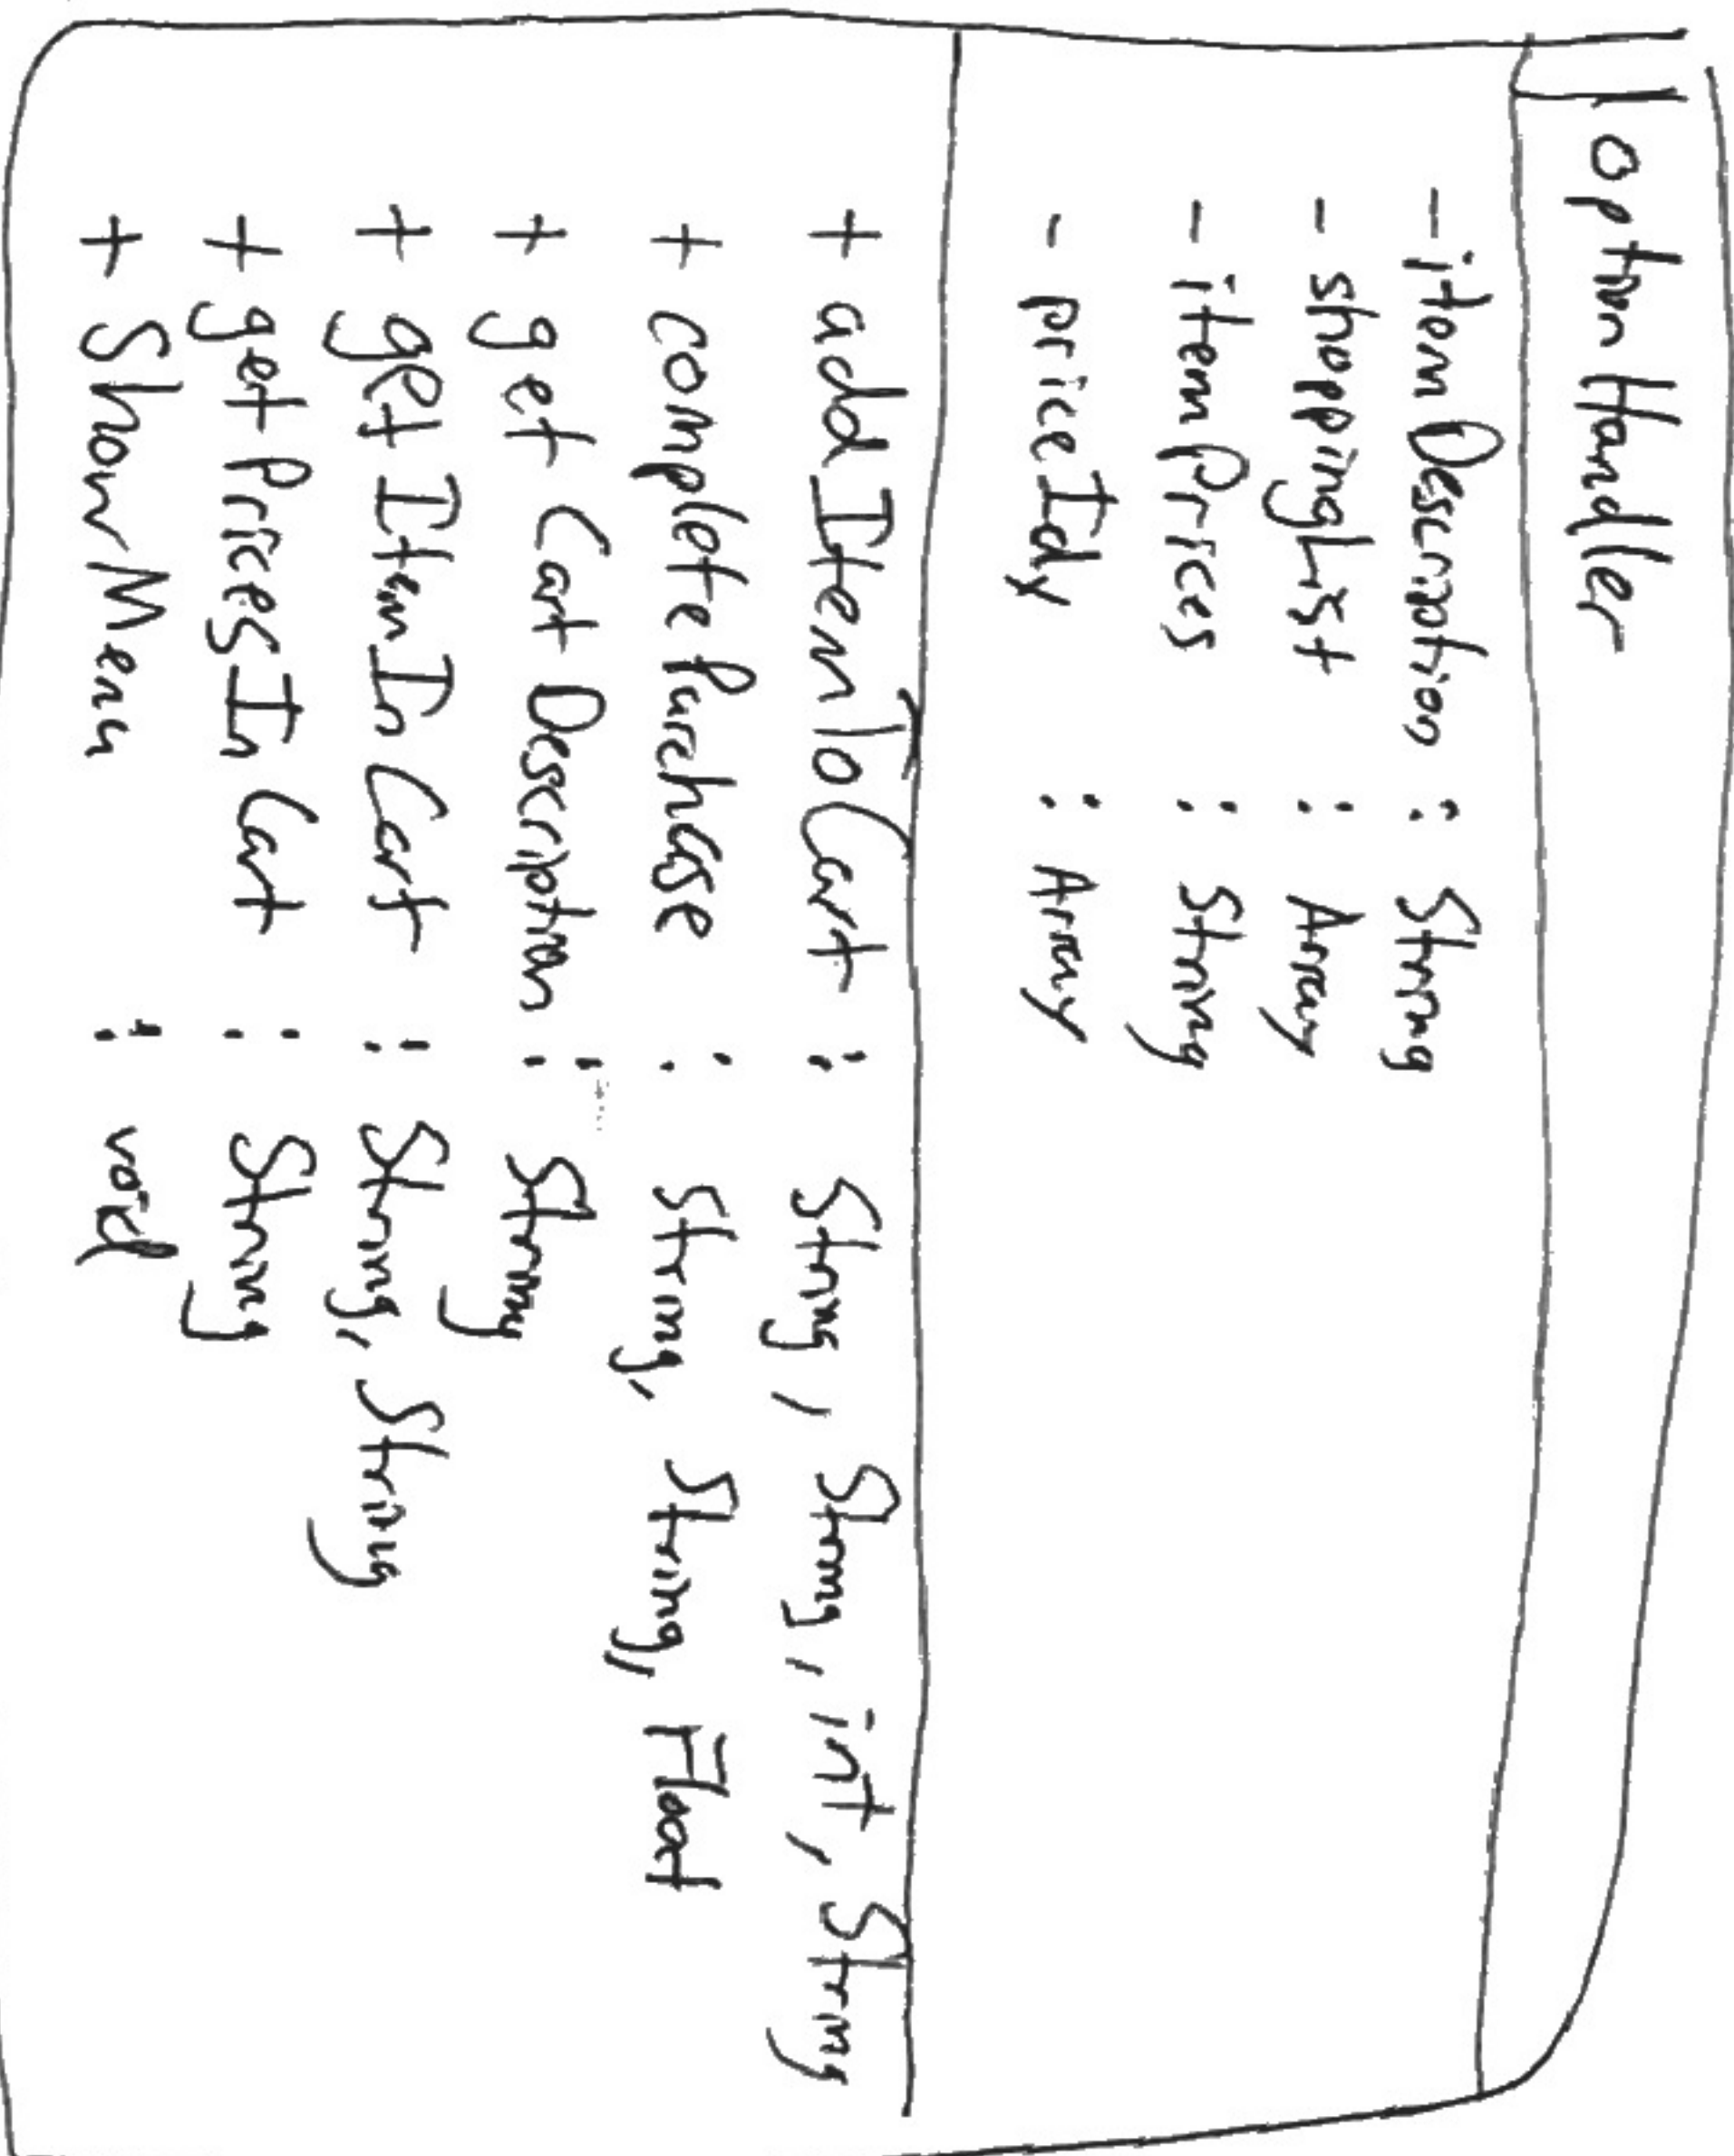 OptionHandler
- itemDescription : String
- shoppingList : Array
- itemPrices : String
- priceIdx : Array
+ addItemToCart : String, String, int, String
+ completePurchase : String, String, Float
+ getCartDescription : String
+ getItemInCart : String, String
+ getPricesInCart : String
+ ShowMenu : void